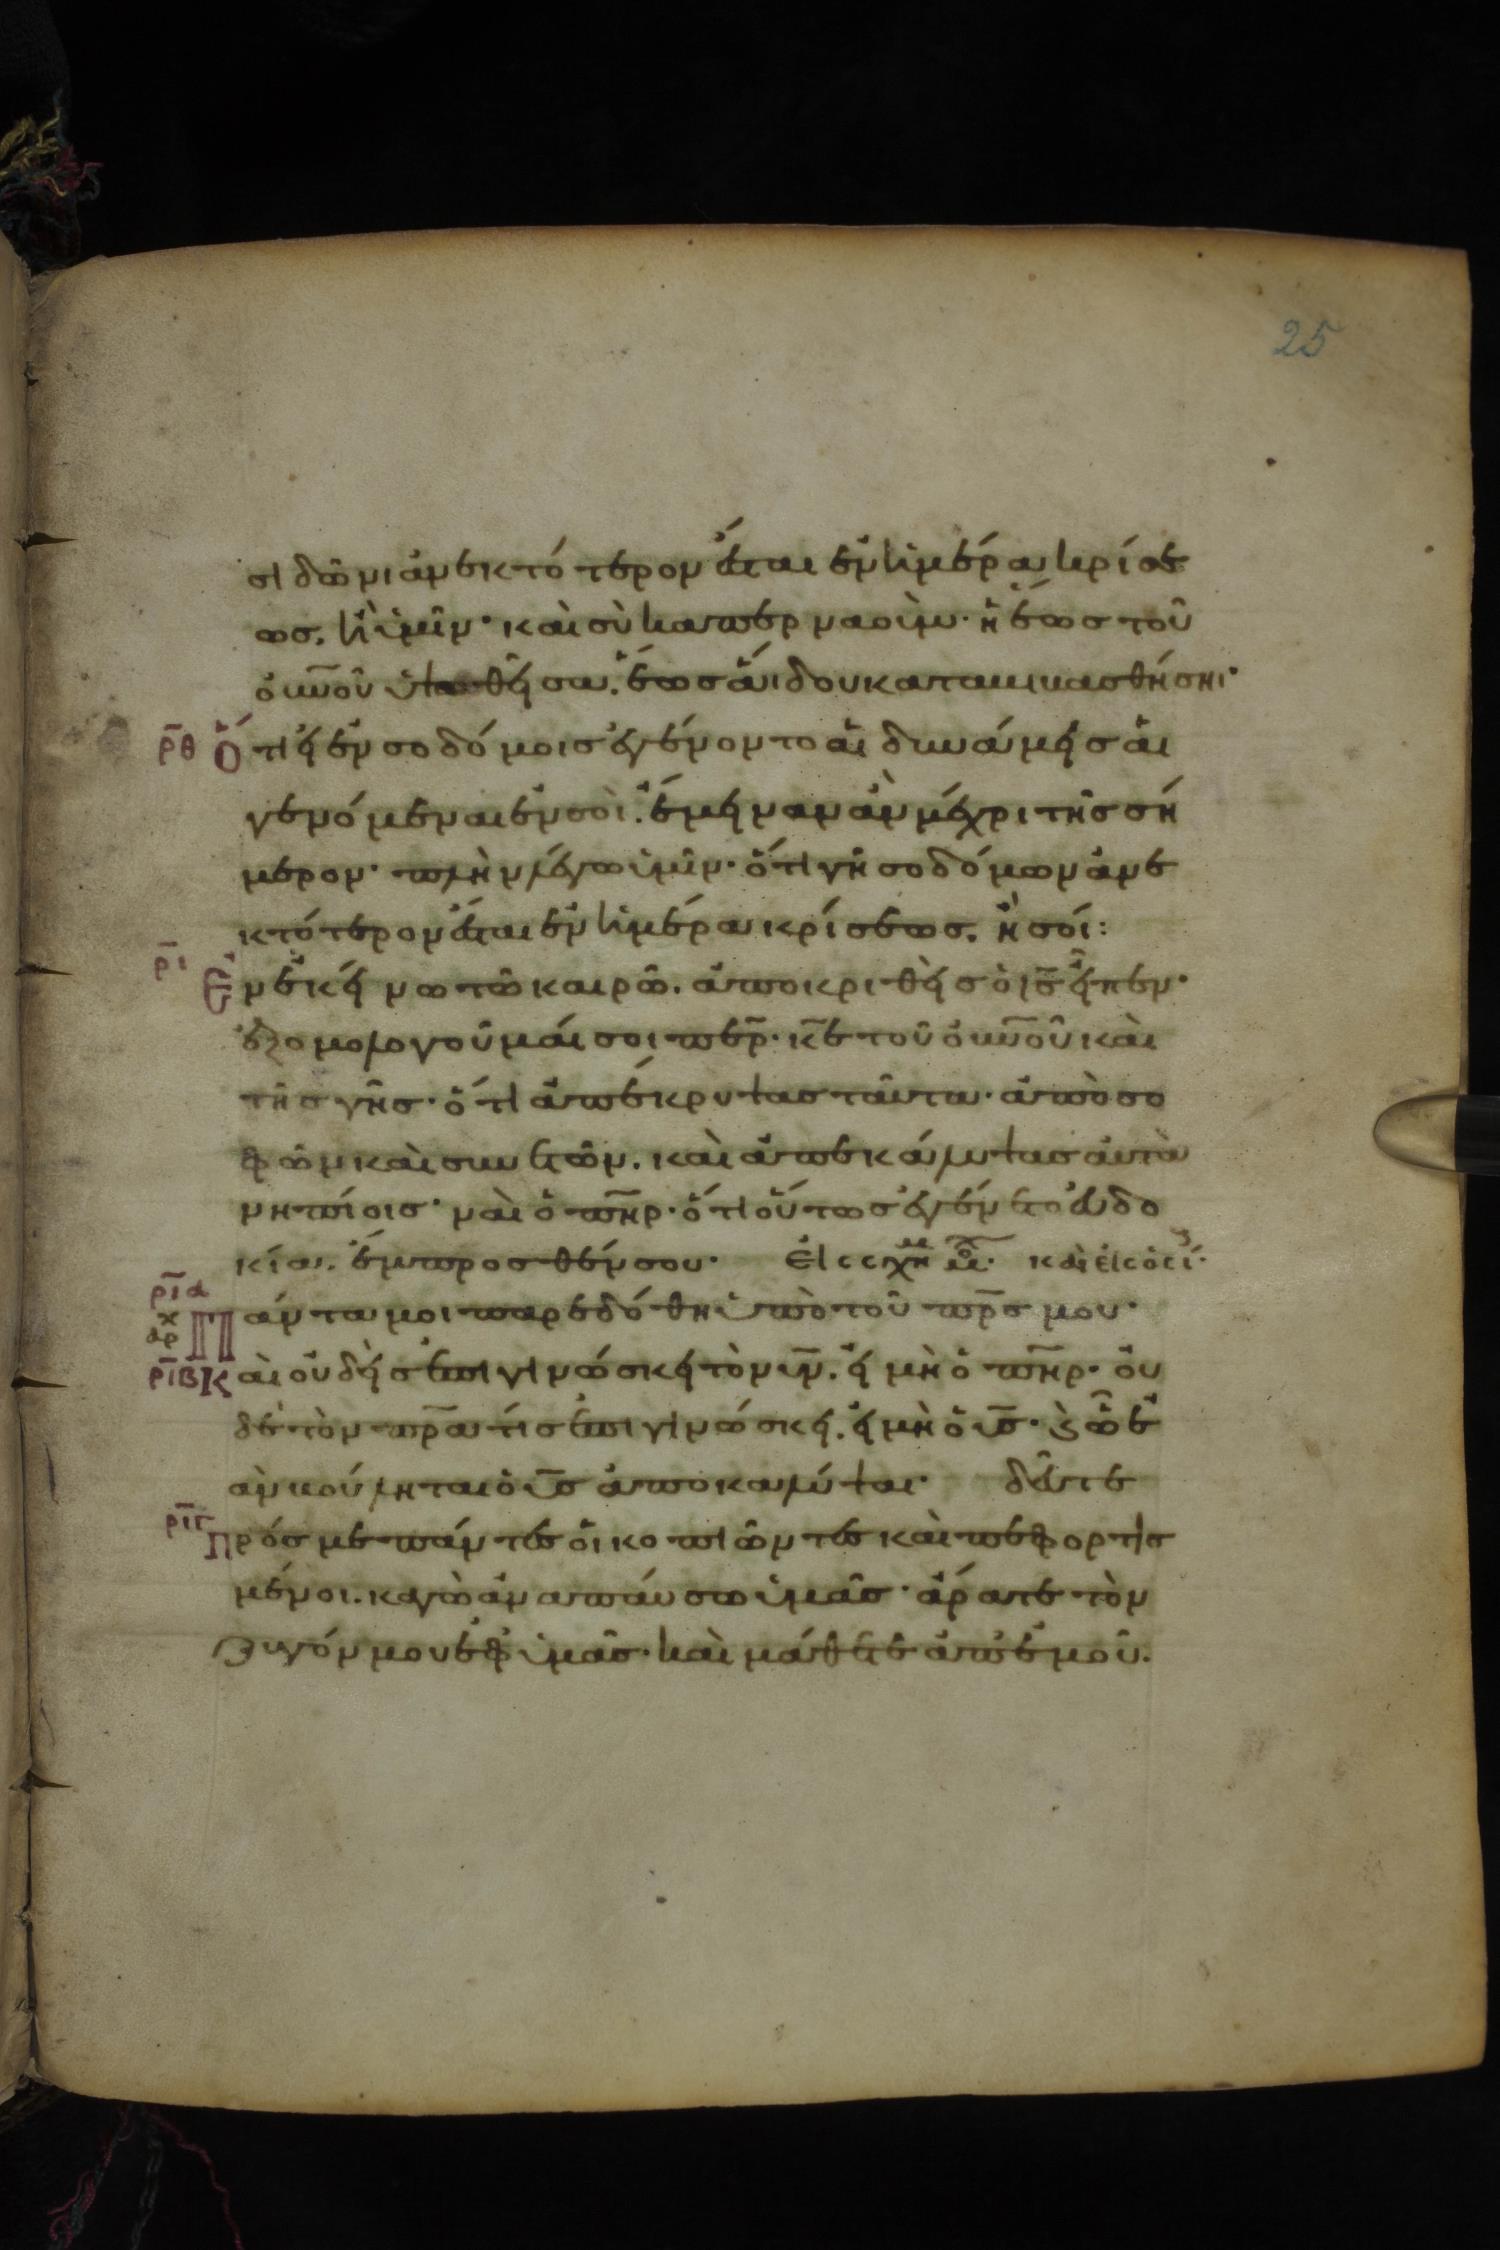 25
σιδῶνι ἀνεκτότερον ἔσται ἐν ἡμέρα κρίσε
ως. ἢ ὑμῖν· καὶ σὺ καπερναούμ· ἡ ἕως τοῦ
οὐνοῦ ὑψωθεῖσα. ἕως ἅιδου καταβιβασθήσηι·
ρθ Ὅτι εἰ ἐν σοδόμοις ἐγένοντο αἱ δυνάμεις αἱ
γενόμεναι ἐν σοὶ. ἔμειναν ἂν μέχρι τῆς σή
μερον· πλὴν λέγω ὑμῖν· ὅτι γῆ σοδόμων ἀνε
κτότερον ἔσται ἐν ἡμέρα κρίσεως. ἢ σοί:
ρι Ἐν ἐκείνω τῶ καιρῶ. ἀποκριθεὶς ὁ ις εἶπεν·
ἐξομολογοῦμαί σοι περ· κε τοῦ οὐνοῦ καὶ
τῆς γῆς· ὅτι ἀπέκρυψας ταῦτα· ἀπὸ σο
φῶν καὶ συνετῶν. καὶ ἀπεκάλυψας αὐτὰ
νηπίοις· ναὶ ὁ πηρ· ὅτι οὕτως ἐγένετο εὐδο
κία. ἔμπροσθέν σου·
ρια Πάντα μοι παρεδόθη ὑπὸ τοῦ πρς μου·
ριβ Καὶ οὐδεὶς ἐπιγινώσκει τὸν υν. εἰ μὴ ὁ πηρ· οὐ
δὲ τὸν πρα τίς ἐπιγινώσκει. εἰ μὴ ὁ υς· ϗ ὧ ἐ
ὰν βούληται ὁ υς ἀποκαλύψαι· δεῦτε
ριγ πρός με πάντες οἱ κοπιῶντες καὶ πεφορτισ
μένοι. καγὼ ἀναπαύσω ὑμᾶς· ἄρατε τὸν
ζυγόν μου ἐφ ὑμᾶς· καὶ μάθετε ἀπ ἐμοῦ.